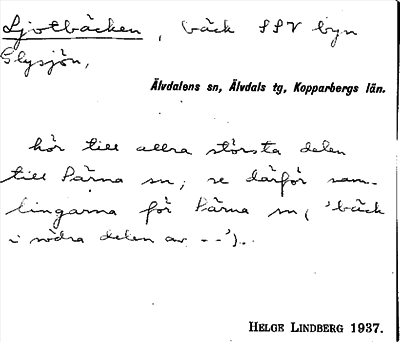 Ljotbäcken, bäck SSV byn
Glysjön,
Älvdalens sn, Älvdals tg, Kopparbergs län.
hör till allra största delen
till Särna sn; se därför sam-
lingarna för Särna sn ('bäck
i södra delen av --').
HELGE LINDBERG 1937.